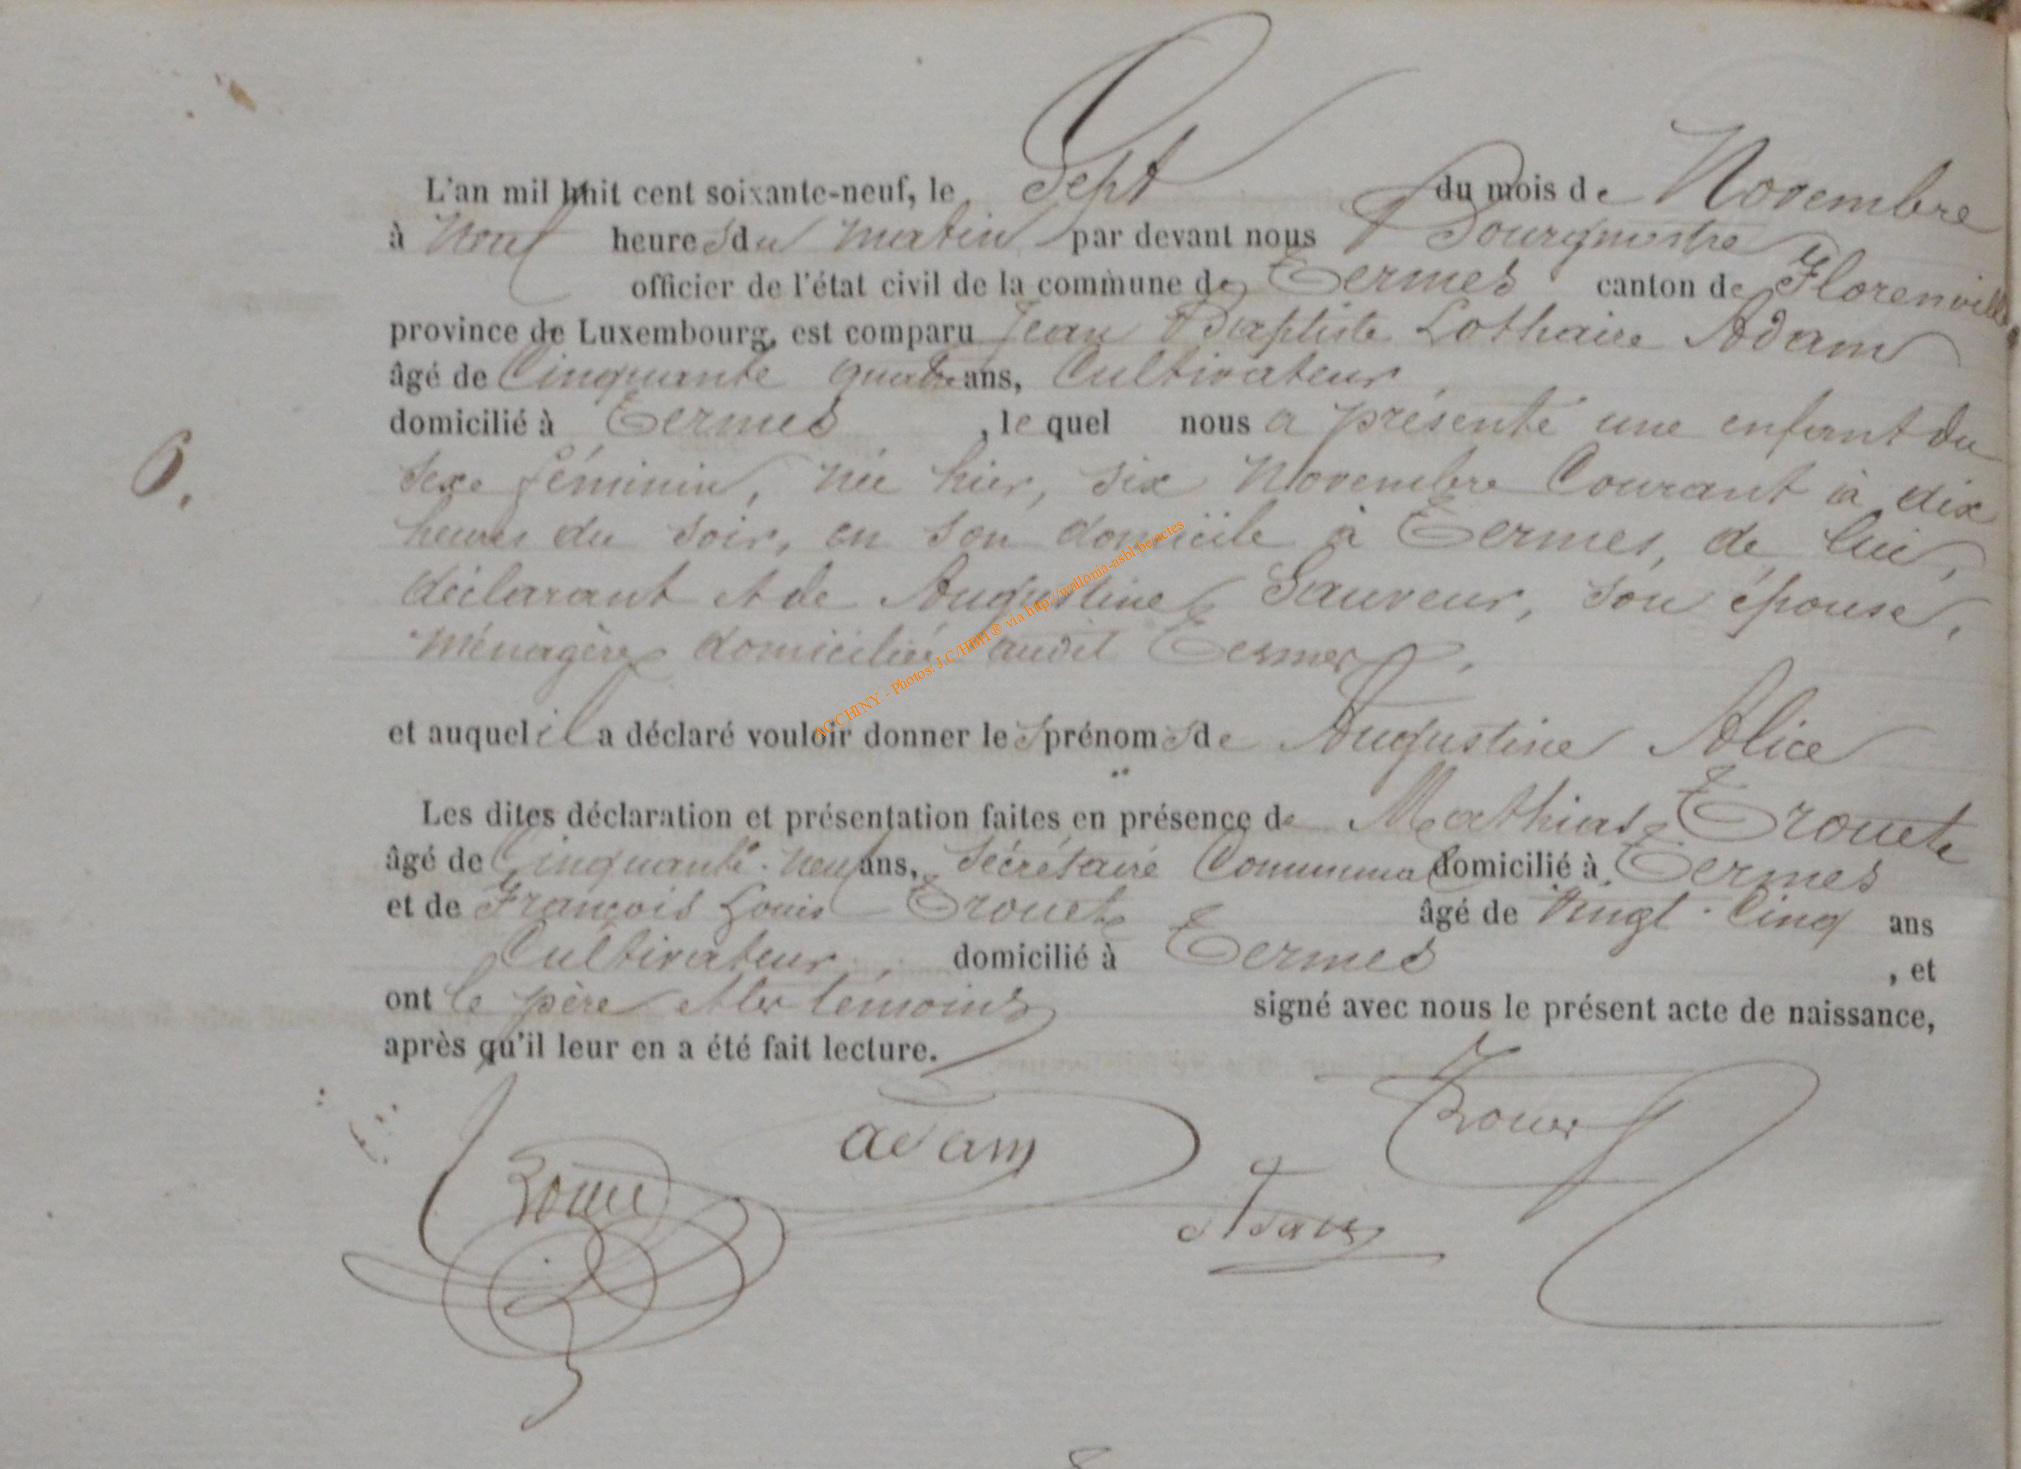 L'an mil huit cent soixante-neuf, le Sept du mois de Novembre
à neuf heures du matin par devant nous Bourgmestre
officier de l'état civil de la commune de Termes canton de Florenville
province de Luxembourg, est comparu Jean Baptiste Lothaire Adam
âgé de Cinquante quatre ans, Cultivateur
domicilié à Termes, lequel nous a présenté une enfant du
6. sexe féminin, née hier, six Novembre Courant à dix
heures du soir, en son domicile à Termes, de lui,
déclarant et de Augustine Sauveur, son épouse,
ménagère domiciliée audit Termes.
ACCHINY - Photos: J.C/HBH ® via http://wallonia-asbl.be/actes
et auquel il a déclaré vouloir donner les prénoms de Augustine Alice
Les dites déclaration et présentation faites en présence de Mathias Trouet
âgé de Cinquante-neuf ans, Sécrétaire Communal domicilié à Termes
et de François Louis Trouet âgé de Vingt-Cinq ans
Cultivateur, domicilié à Termes, et
ont le père et les témoins signé avec nous le présent acte de naissance,
après qu'il leur en a été fait lecture.
Trouet
adam
Adam